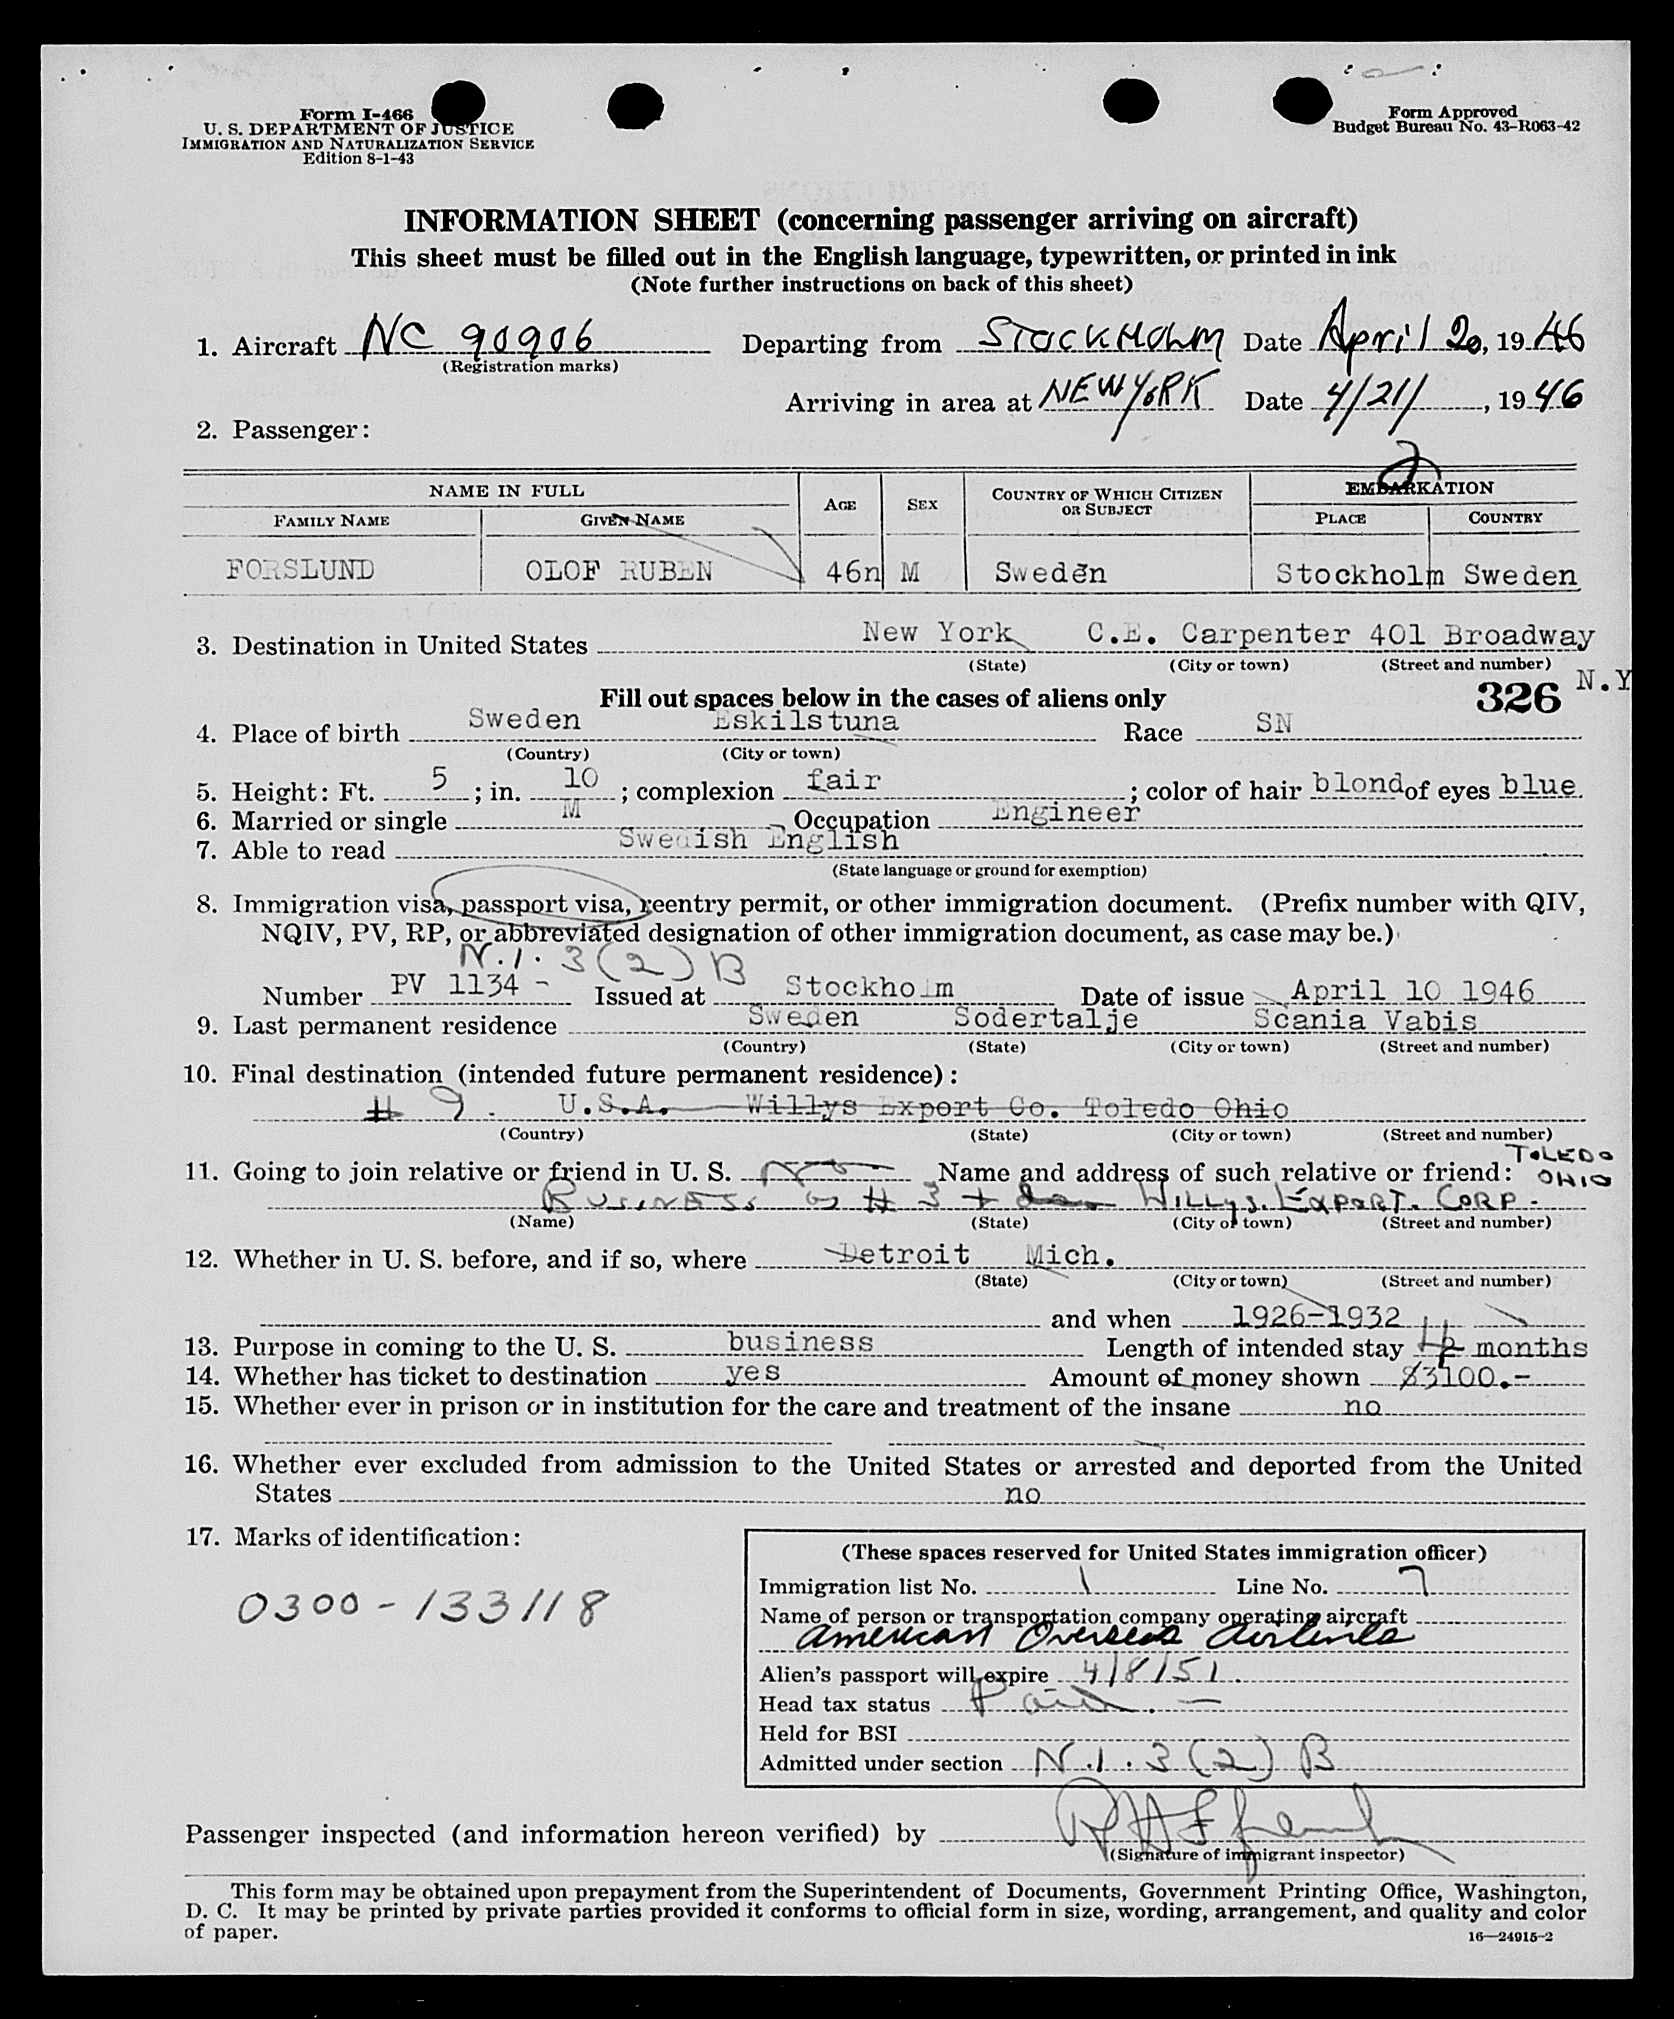 Form I-466
U. S. DEPARTMENT OF JUSTICE
IMMIGRATION AND NATURALIZATION SERVICE
Edition 8-1-43
Form Approved
Budget Bureau No. 43-R063-42
INFORMATION SHEET (concerning passenger arriving on aircraft)
This sheet must be filled out in the English language, typewritten, or printed in ink
(Note further instructions on back of this sheet)
1. Aircraft NC 90906 Departing from STOCKHOLM Date April 20, 1946
(Registration marks)
Arriving in area at NEW YORK Date 4/21/, 1946
2. Passenger:
NAME IN FULL AGE SEX COUNTRY OF WHICH CITIZEN OR SUBJECT EMBARKATION
FAMILY NAME GIVEN NAME PLACE COUNTRY
FORSLUND OLOF RUBEN 46n M Sweden Stockholm Sweden
3. Destination in United States New York C.E. Carpenter 401 Broadway
(State) (City or town) (Street and number) N.Y
Fill out spaces below in the cases of aliens only 326
4. Place of birth Sweden Eskilstuna Race SN
(Country) (City or town)
5. Height: Ft. 5; in. 10; complexion fair; color of hair blond of eyes blue.
6. Married or single M Occupation Engineer
7. Able to read Swedish English
(State language or ground for exemption)
8. Immigration visa, passport visa, reentry permit, or other immigration document. (Prefix number with QIV,
NQIV, PV, RP, or abbreviated designation of other immigration document, as case may be.)
N.I. 3 (2) B
Number PV 1134 - Issued at Stockholm Date of issue April 10 1946
9. Last permanent residence Sweden Sodertalje Scania Vabis
(Country) (State) (City or town) (Street and number)
10. Final destination (intended future permanent residence):
# 9. U.S.A. Willys Export Co. Toledo Ohio
(Country) (State) (City or town) (Street and number)
11. Going to join relative or friend in U. S. Name and address of such relative or friend: TOLEDO OHIO
BUSINESS # 3 + WILLYS. EXPORT. CORP.
(Name) (State) (City or town) (Street and number)
12. Whether in U. S. before, and if so, where Detroit Mich.
(State) (City or town) (Street and number)
and when 1926-1932
13. Purpose in coming to the U. S. business Length of intended stay months
14. Whether has ticket to destination yes Amount of money shown $3100.-
15. Whether ever in prison or in institution for the care and treatment of the insane no
16. Whether ever excluded from admission to the United States or arrested and deported from the United
States no
17. Marks of identification:
0300-133118
(These spaces reserved for United States immigration officer)
Immigration list No. 1 Line No. 7
Name of person or transportation company operating aircraft
American Overseas Airlines
Alien's passport will expire 4/8/51.
Head tax status Paid. —
Held for BSI
Admitted under section N.I. 3 (2) B
Passenger inspected (and information hereon verified) by
(Signature of immigrant inspector)
This form may be obtained upon prepayment from the Superintendent of Documents, Government Printing Office, Washington,
D. C. It may be printed by private parties provided it conforms to official form in size, wording, arrangement, and quality and color
of paper.
16—24915-2